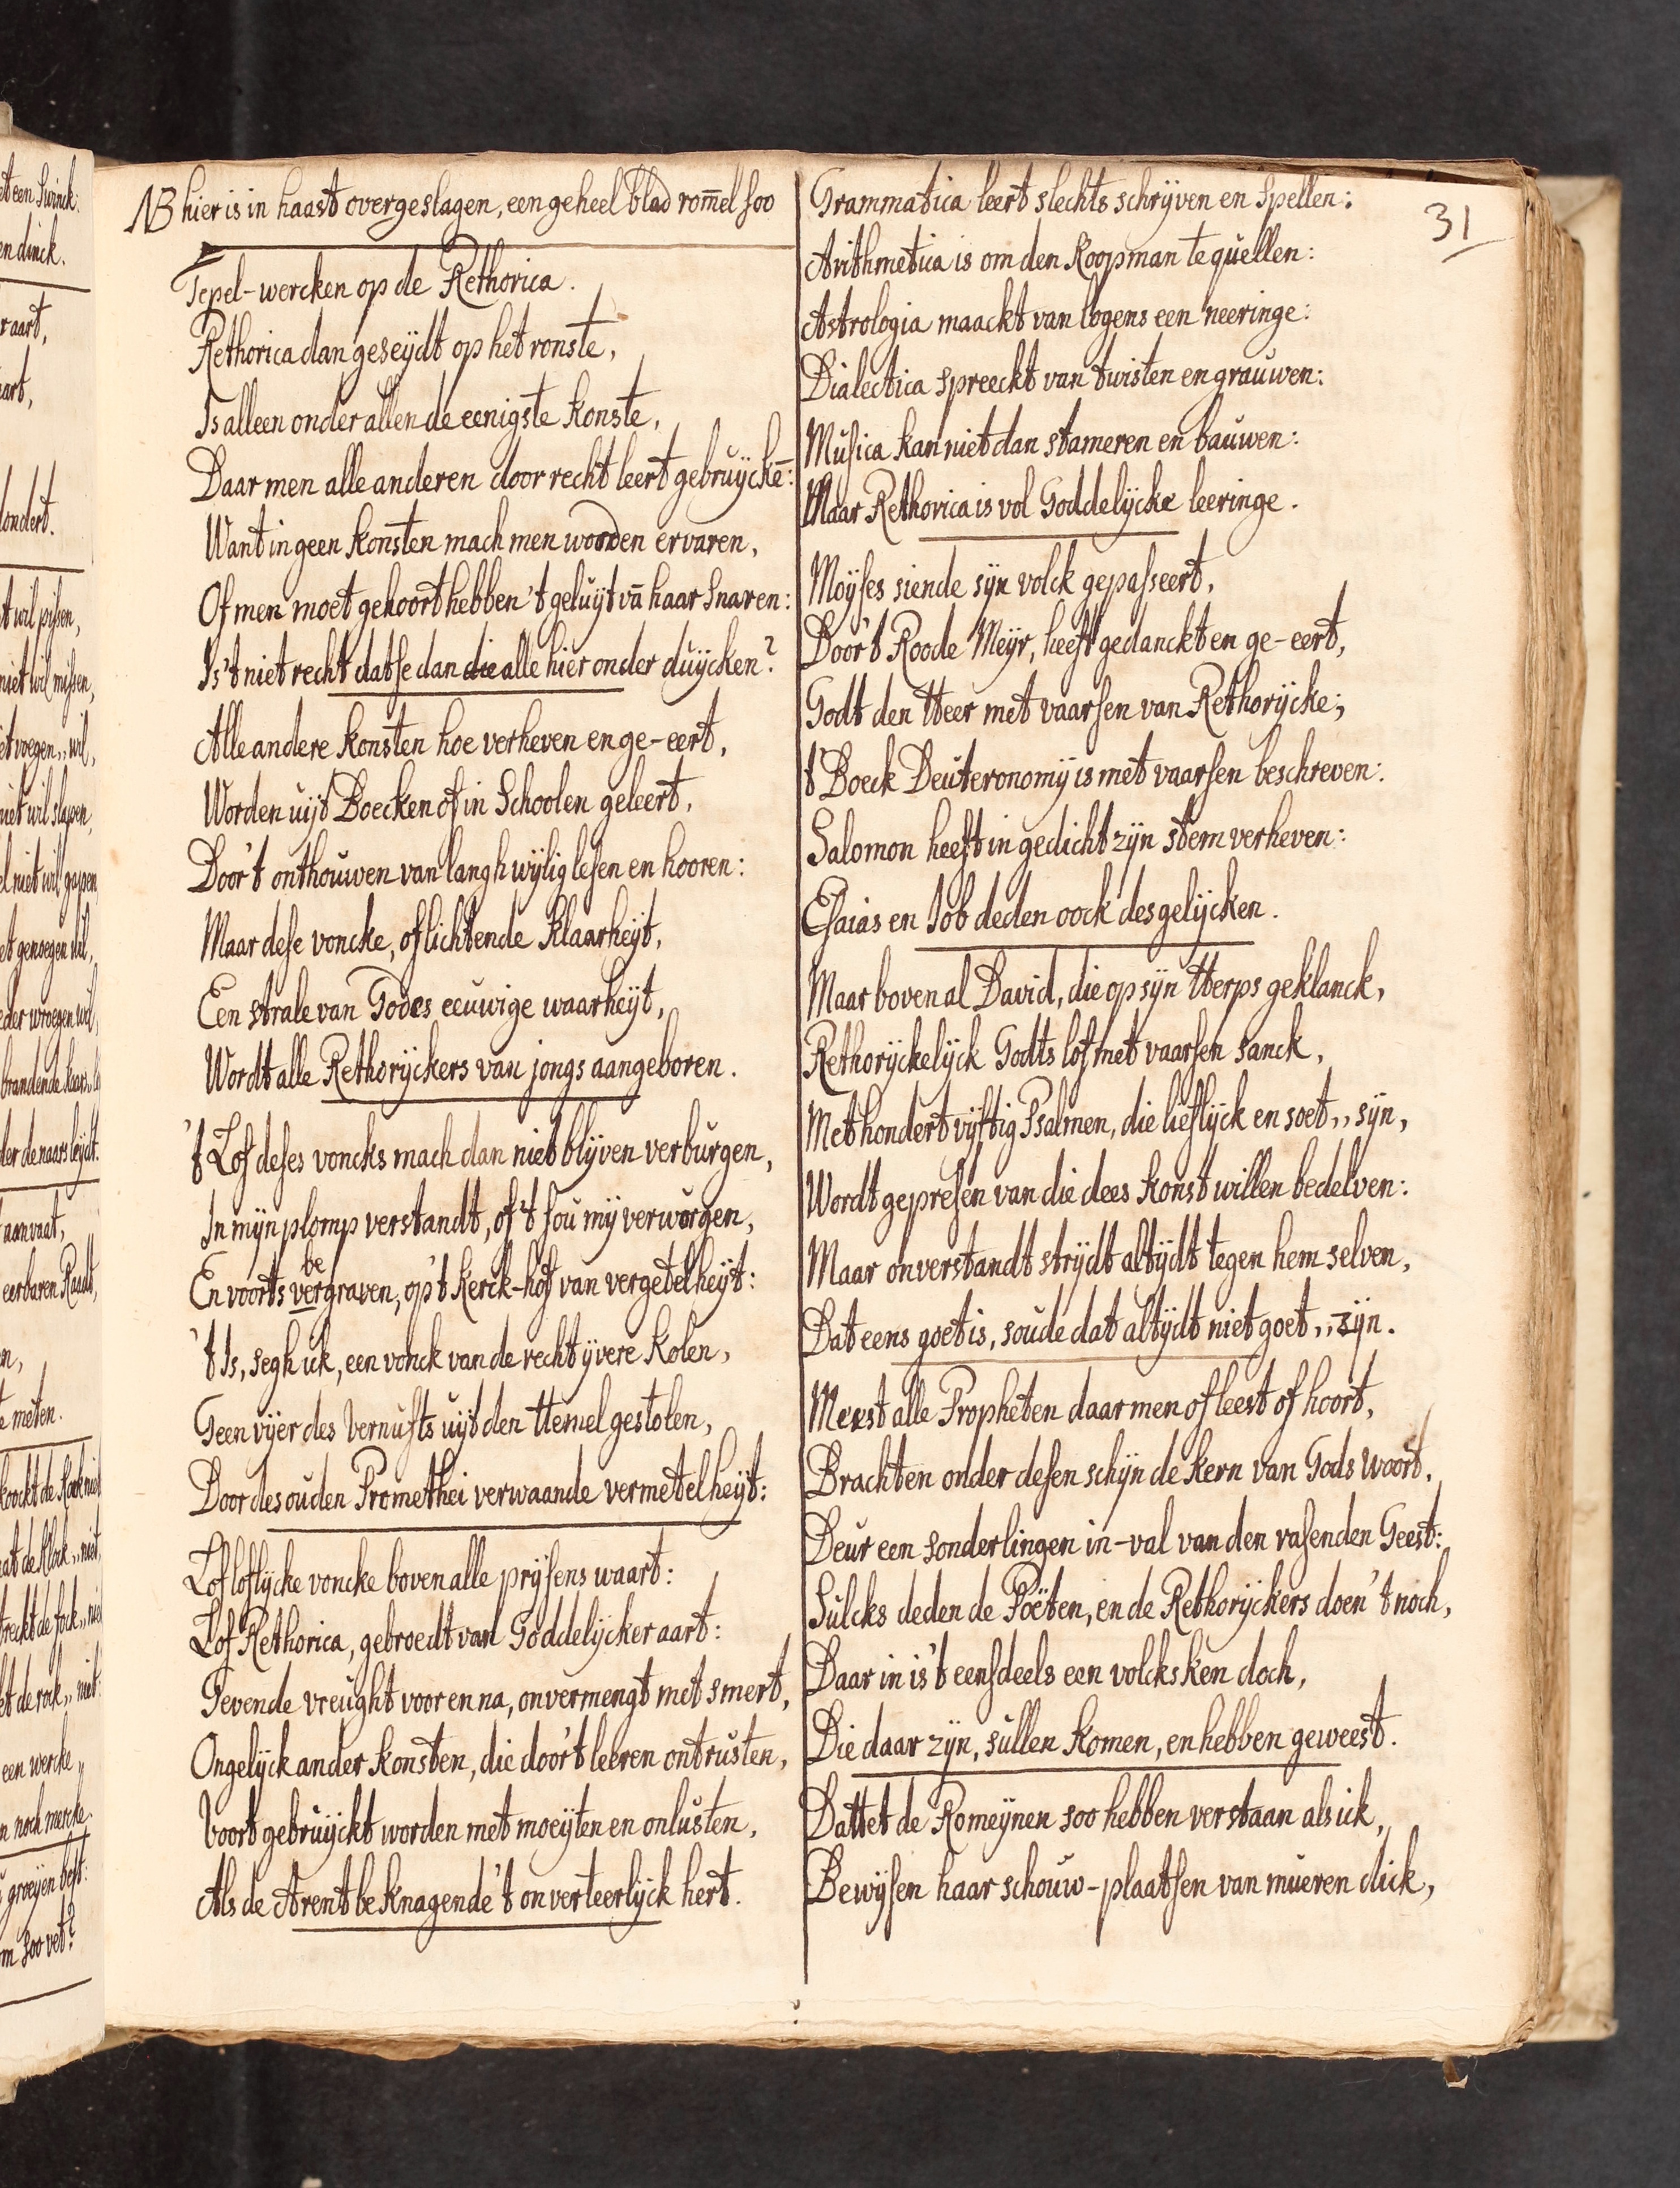 NB hier is in haast overgeslagen, een geheel blad rom̄el soo
Tepel-wercken op de Rethorica.
Rethorica dan geseÿdt op het ronste,
Is alleen onder allen de eenigste konste,
Daar men alle anderen door recht leert gebruÿckē:
Want in geen konsten mach men worden ervaren,
Of men moet gehoort hebben 't geluÿt vā haar snaren:
Is 't niet recht datse dan die alle hier onder duÿcken?
Alle andere konsten hoe verheven en ge-eert,
Worden uÿt Boecken of in Schoolen geleert,
Door't onthouwen van langhwÿlig lesen en hooren:
Maar dese voncke, of lichtende klaarheÿt,
Een strale van Godes eeuwige waarheÿt,
Wordt alle Rethorÿckers van jongs aangeboren.
't Lof deses voncks mach dan niet blÿven verburgen,
In mÿn plomp verstandt, of 't sou mÿ verwurgen,
be
En voorts vergraven, op't Kerck-hof van vergetelheÿt:
't Is, segh ick, een vonck van de recht ÿvere kolen,
Geen vÿer des vernufts uÿt den Hemel gestolen,
Door des ouden Promethei verwaande vermetelheÿt:
Lof loflÿcke voncke boven alle prÿsens waart:
Lof Rethorica, gebroedt van Goddelÿcker aart:
Gevende vreught voor en na, onvermengt met smert,
Ongelÿck ander konsten, die door't leeren ontrusten,
Voort gebruÿckt worden met moeÿten en onlusten,
Als de Arent beknagende 't onverteerlÿck hert.
31
Grammatica leert slechts schrÿven en spellen:
Arithmetica is om den Koopman te quellen:
Astrologia maackt van logens een neeringe:
Dialectica spreeckt van twisten en grauwen:
Musica kan niet dan stameren en bauwen:
Maar Rethorica is vol Goddelÿcke leeringe.
Moÿses siende sÿn volck gepasseert,
Door't Roode Meÿr, heeft gedanckt en ge-eert,
Godt den Heer met vaarsen van Rethorÿcke;
t Boeck Deuteronomÿ is met vaarsen beschreven:
Salomon heeft in gedicht zÿn stem verheven:
Esaias en Iob deden oock desgelÿcken.
Maar boven al David, die op sÿn Herps geklanck,
Rethorÿckelÿck Godts lof met vaarsen sanck,
Met hondert vÿftig Psalmen, die lieflÿck en soet,, sÿn,
Wordt gepresen van die dees konst willen bedelven:
Maar onverstandt strÿdt altÿdt tegen hem selven,
Dat eens goet is, soude dat altÿdt niet goet,, zÿn.
Meest alle Propheten daar men of leest of hoort,
Brachten onder desen schÿn de kern van Gods woort,
Deur een sonderlingen in-val van den rasenden Geest:
Sulcks deden de Poëten, en de Rethorÿckers doen 't noch,
Daar in is't eensdeels een volcksken doch,
Die daar zÿn, sullen komen, en hebben geweest.
Dattet de Romeÿnen soo hebben verstaan als ick,
Bewÿsen haar schouw-plaatsen van mueren dick,